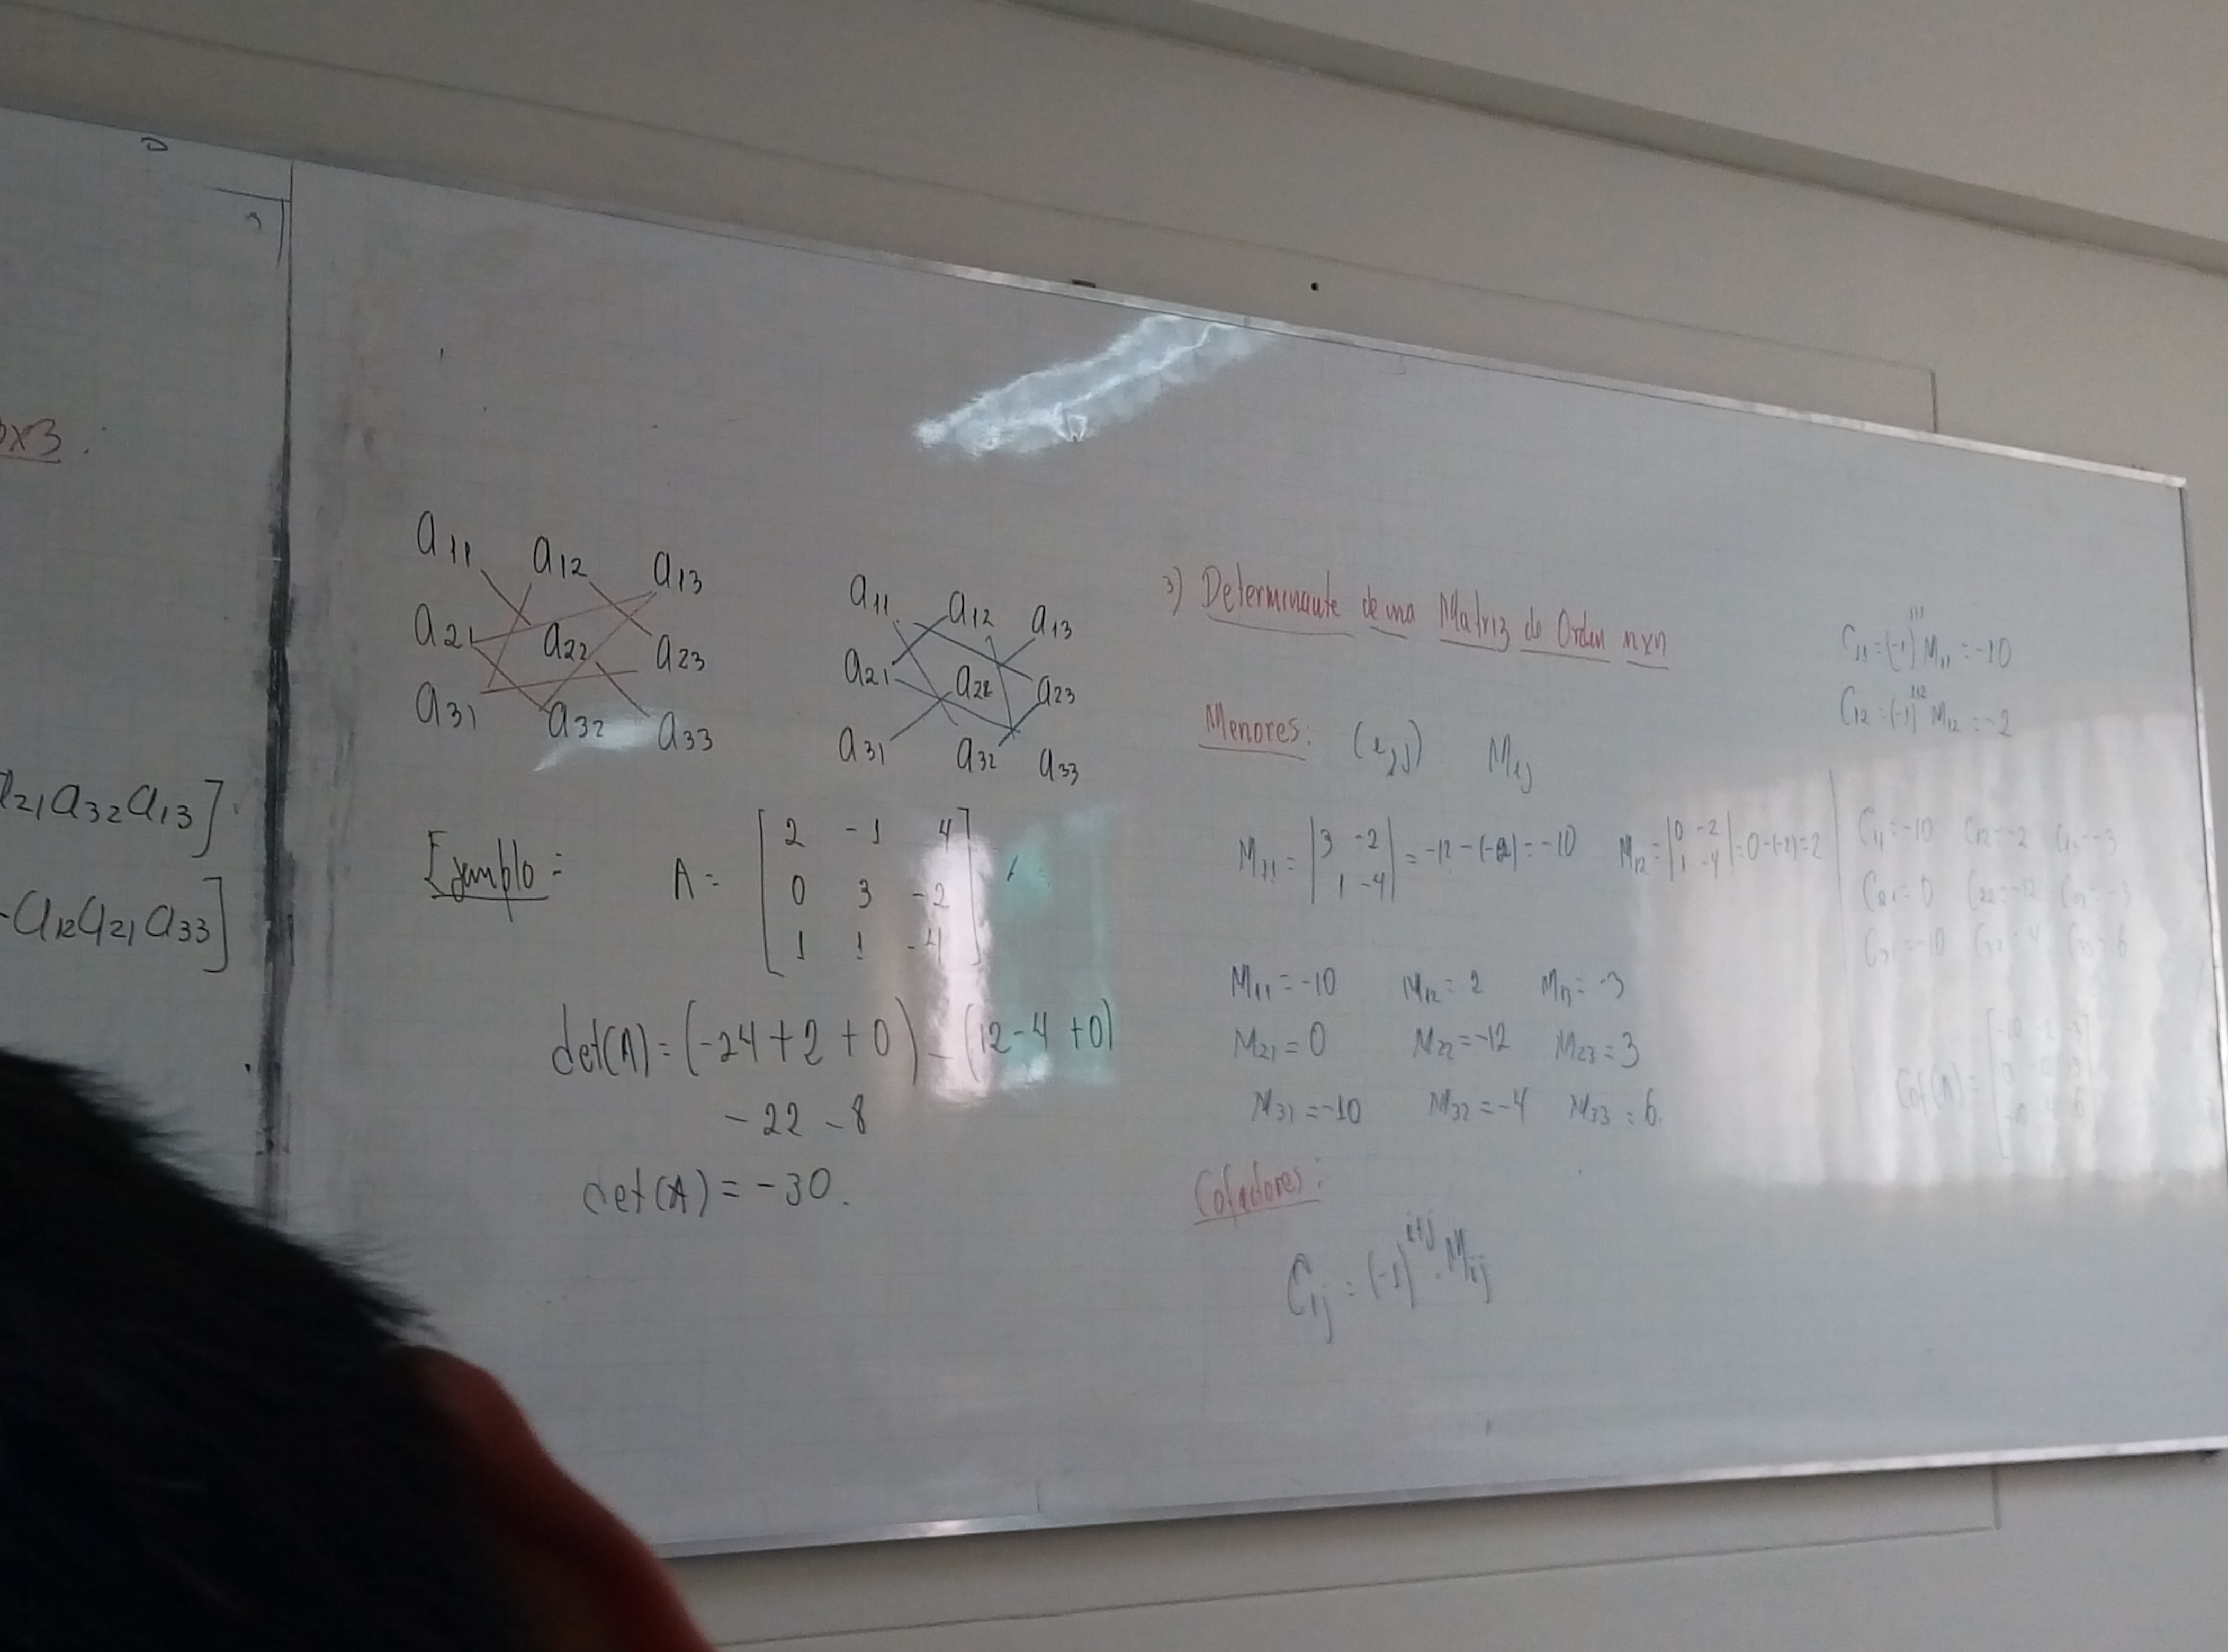 x3.
a21 a32 a13].
-a12 a21 a33]
a11 a12 a13
a21 a22 a23
a31 a32 a33
a11 a12 a13
a21 a22 a23
a31 a32 a33
Ejemplo: A = [2 -1 4
0 3 -2
1 1 -4]
det(A) = (-24+2+0) - (12-4+0)
-22 -8
det(A) = -30.
3) Determinante de una Matriz de Orden nxn
Menores: (i,j) Mij
M11 = |3 -2
1 -4| = -12-(-2) = -10
M12 = |0 -2
1 -4| = 0-(-2) = 2
M11 = -10 M12 = 2 M13 = -3
M21 = 0 M22 = -12 M23 = 3
M31 = -10 M32 = -4 M33 = 6.
Cofactores:
Cij = (-1)^i+j . Mij
C11 = (-1)^1+1 M11 = -10
C12 = (-1)^1+2 M12 = -2
C11 = -10 C12 = -2 C13 = -3
C21 = 0 C22 = -12 C23 = -3
C31 = -10 C32 = 4 C33 = 6
Cof(A) = [-10 -2 -3